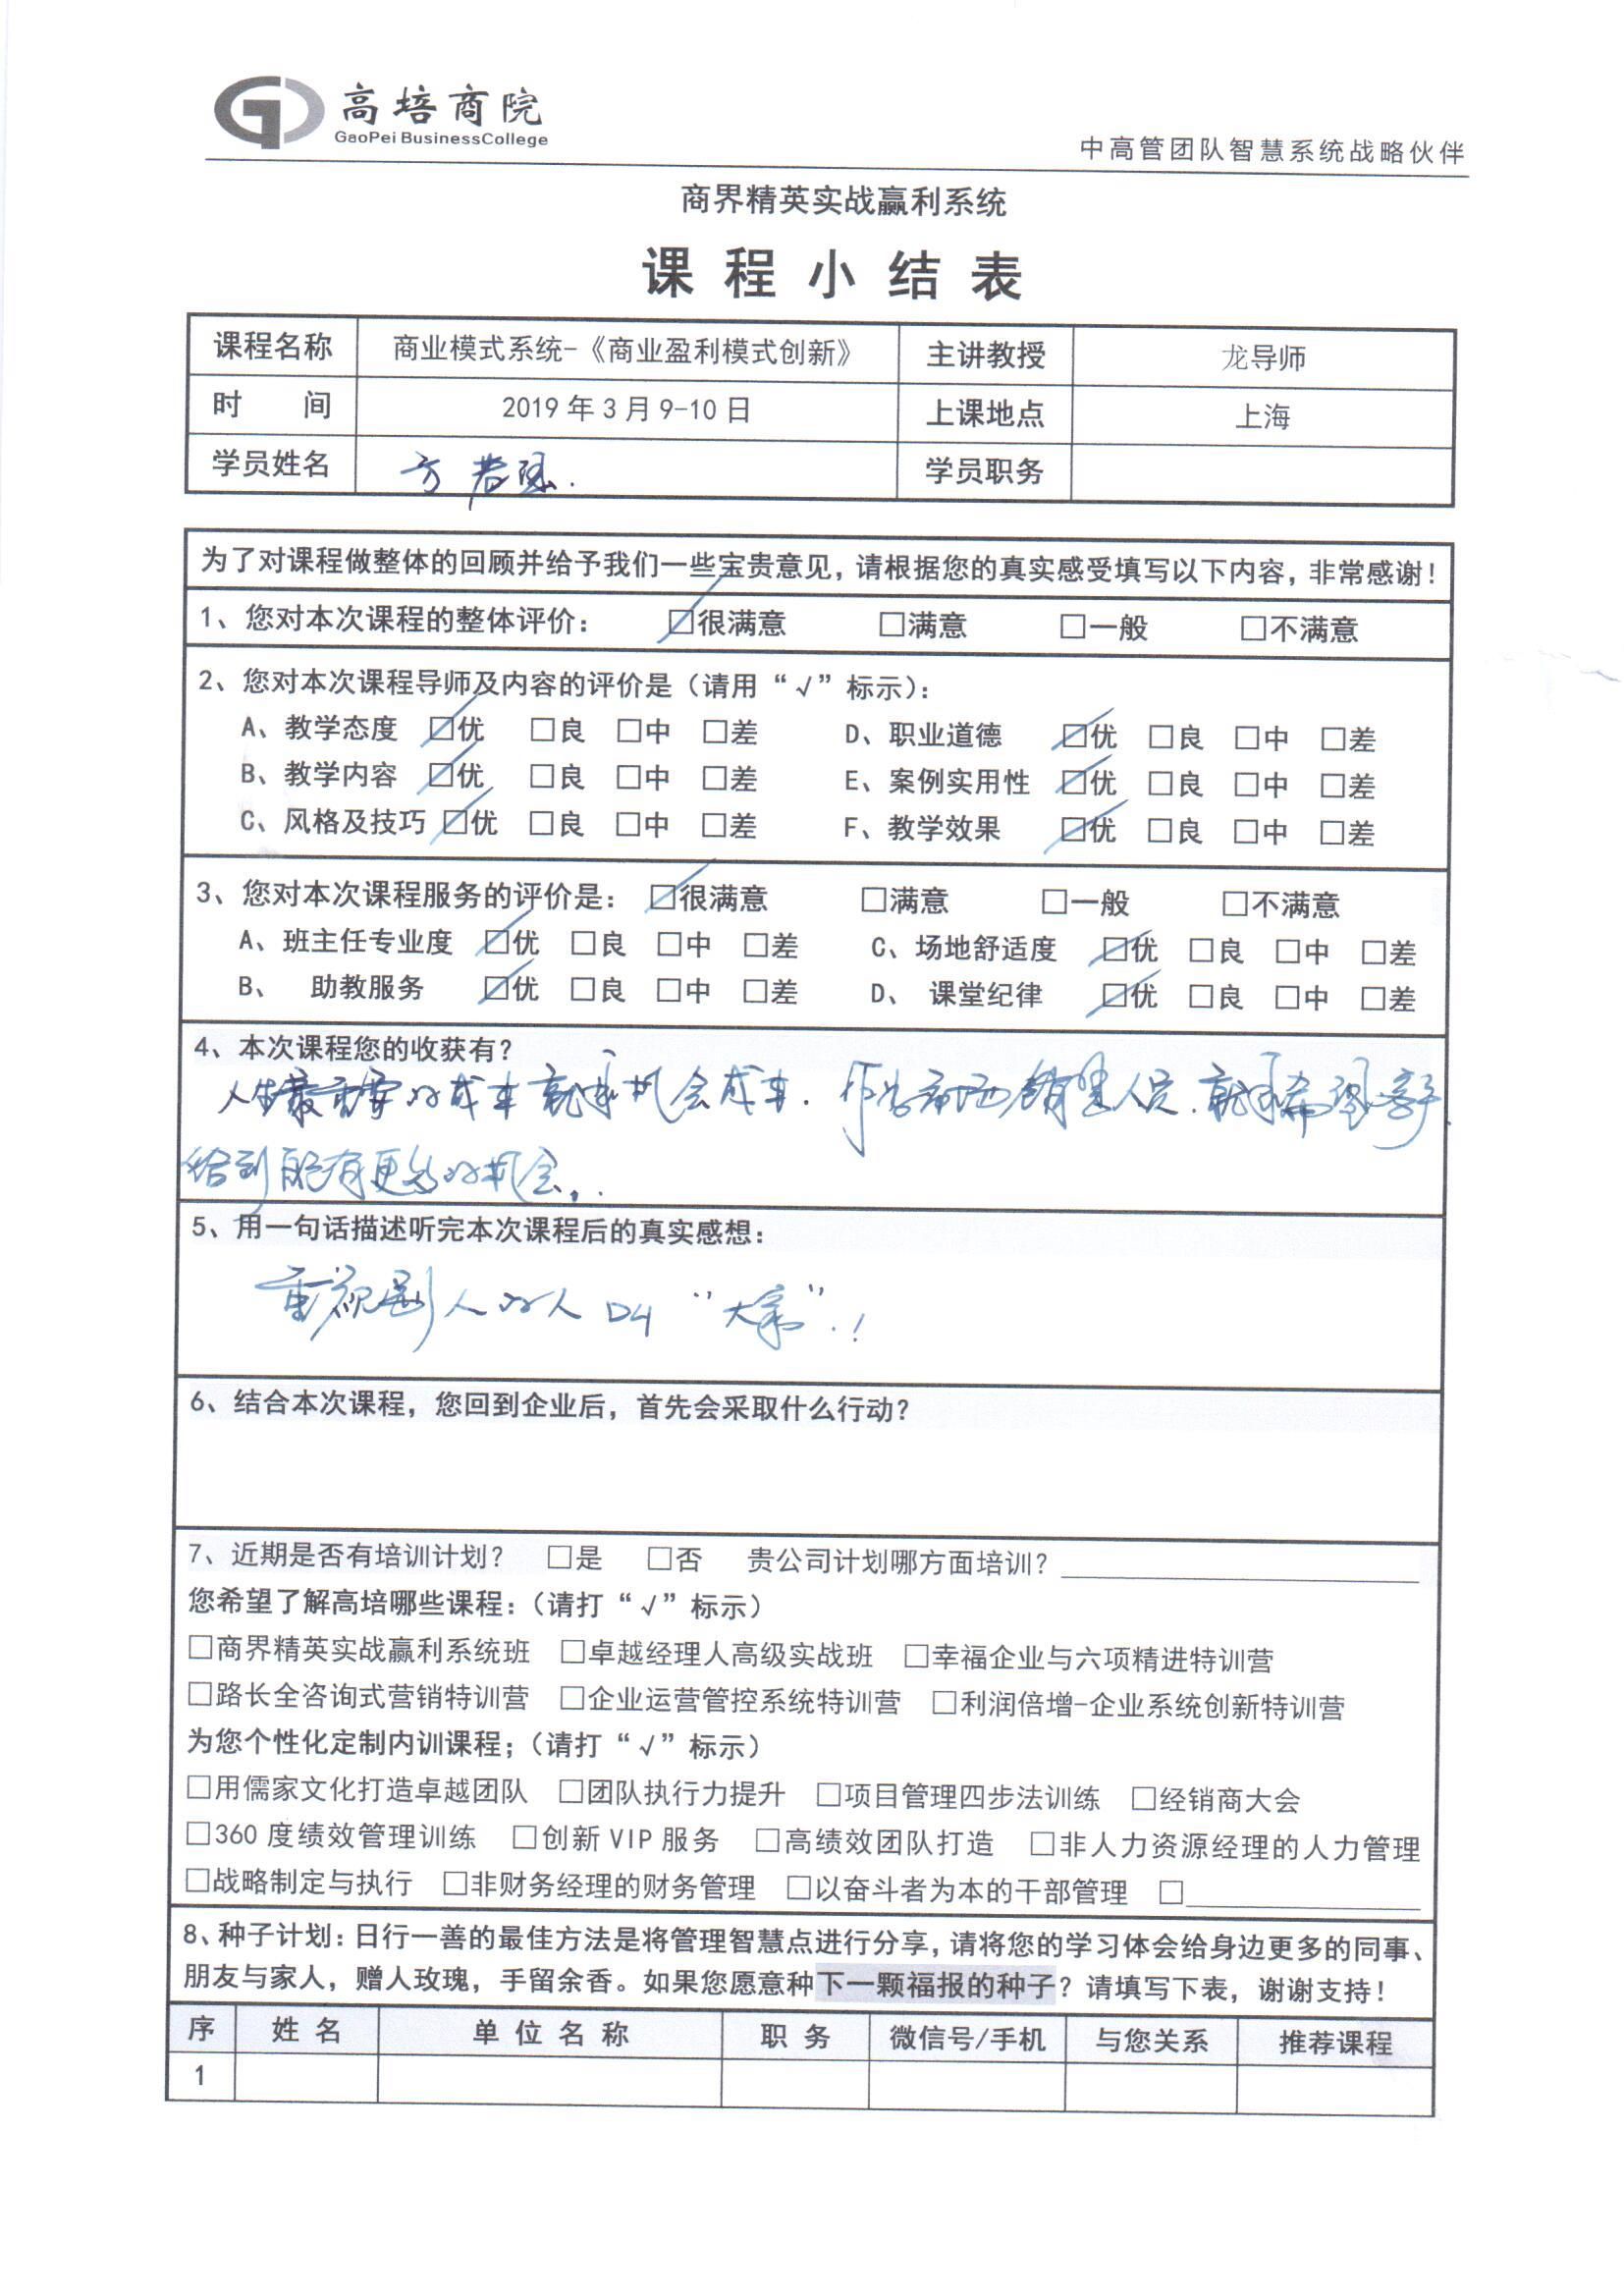 高培商院
GaoPei BusinessCollege
中高管团队智慧系统战略伙伴
商界精英实战赢利系统
课程小结表
课程名称 商业模式系统-《商业盈利模式创新》 主讲教授 龙导师
时 间 2019年3月9-10日 上课地点 上海
学员姓名 方 学员职务
为了对课程做整体的回顾并给予我们一些宝贵意见，请根据您的真实感受填写以下内容，非常感谢！
1、您对本次课程的整体评价： ☑很满意 □满意 □一般 □不满意
2、您对本次课程导师及内容的评价是（请用“√”标示）：
A、教学态度 ☑优 □良 □中 □差 D、职业道德 ☑优 □良 □中 □差
B、教学内容 ☑优 □良 □中 □差 E、案例实用性 ☑优 □良 □中 □差
C、风格及技巧 ☑优 □良 □中 □差 F、教学效果 ☑优 □良 □中 □差
3、您对本次课程服务的评价是： ☑很满意 □满意 □一般 □不满意
A、班主任专业度 ☑优 □良 □中 □差 C、场地舒适度 ☑优 □良 □中 □差
B、 助教服务 ☑优 □良 □中 □差 D、 课堂纪律 ☑优 □良 □中 □差
4、本次课程您的收获有？
人生最重要的成本就是机会成本. 作为 销售人员.就是希望
给到能有更多的机会，.
5、用一句话描述听完本次课程后的真实感想：
重视别人的人叫“大家”.！
6、结合本次课程，您回到企业后，首先会采取什么行动？
7、近期是否有培训计划？ □是 □否 贵公司计划哪方面培训？
您希望了解高培哪些课程：（请打“√”标示）
□商界精英实战赢利系统班 □卓越经理人高级实战班 □幸福企业与六项精进特训营
□路长全咨询式营销特训营 □企业运营管控系统特训营 □利润倍增-企业系统创新特训营
为您个性化定制内训课程；（请打“√”标示）
□用儒家文化打造卓越团队 □团队执行力提升 □项目管理四步法训练 □经销商大会
□360度绩效管理训练 □创新VIP服务 □高绩效团队打造 □非人力资源经理的人力管理
□战略制定与执行 □非财务经理的财务管理 □以奋斗者为本的干部管理 □
8、种子计划：日行一善的最佳方法是将管理智慧点进行分享，请将您的学习体会给身边更多的同事、
朋友与家人，赠人玫瑰，手留余香。如果您愿意种下一颗福报的种子？请填写下表，谢谢支持！
序 姓名 单位名称 职务 微信号/手机 与您关系 推荐课程
1